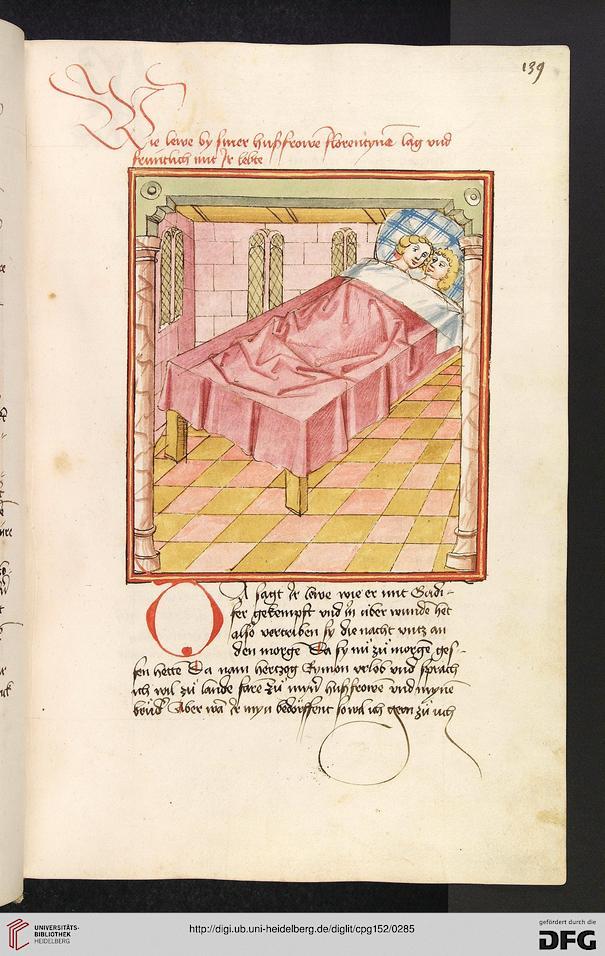 139
Wie lewe by siner hußfrowe florentyne lag vnd
fruntlich mit Ir lebte
Da sagt Ir lewe wie er mit Gadi-
fer gekempft vnd in uber wunde het
also vertriben sy die nacht vntz an
den morge Da sy nu zu morge ges-
sen hette Da nam hertzog Symon vrlob vnd sprach
ich wil zu lande fare zu myner hußfrowe vnd myne
Aber wa Ir myn bedorffent so wil ich gern zu uch
UNIVERSITÄTS-
BIBLIOTHEK
HEIDELBERG
http://digi.ub.uni-heidelberg.de/diglit/cpg152/0285
gefördert durch die
DFG